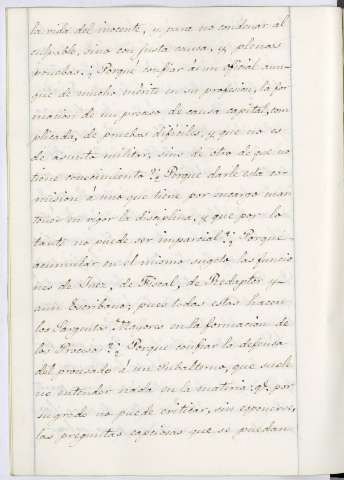 la vida del inocente, y para no condenar al
culpable, sino con justa causa, y plenas
pruebas. ¿Porqué confiar á un oficial aun-
que de mucho mérito en su profesion, la for
macion de un proceso de causa capital, com
plicada, de pruebas dificiles, y que no es
de asunto militar, sino de otro de que no
tiene conocimiento? ¿Porque darle esta co-
mision á uno que tiene por encargo man
tener en rigor la disciplina, y que por lo
tanto no puede ser imparcial? ¿Porqué
acumular en el mismo sugeto las funcio
nes de Juez, de Fiscal, de Redaptor y
aun Escribano; pues todas estas hacen
los Sargentos Mayores en la formacion de
los Procesos? ¿Porque confiar la defensa
del procesado á un subalterno, que suele
no entender nada en la materia: qe. por
su grado no puede criticar, sin esponerse,
las preguntas capciosas que se puedan